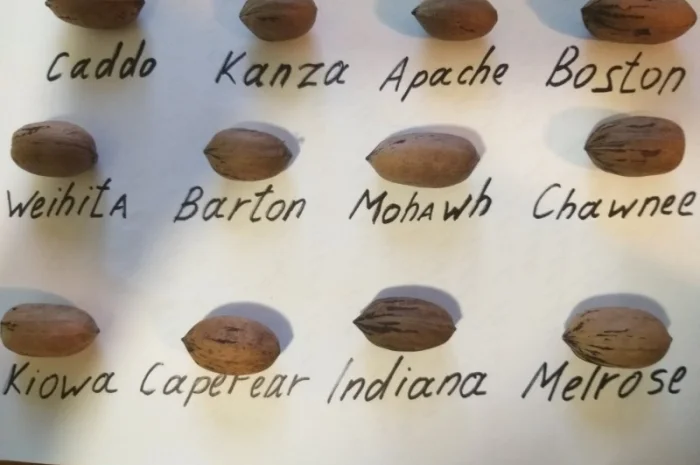 Caddo Kanza Apache Boston
WeihitA Barton MohAwh Chawnee
Kiowa Caperear Indiana Melrose